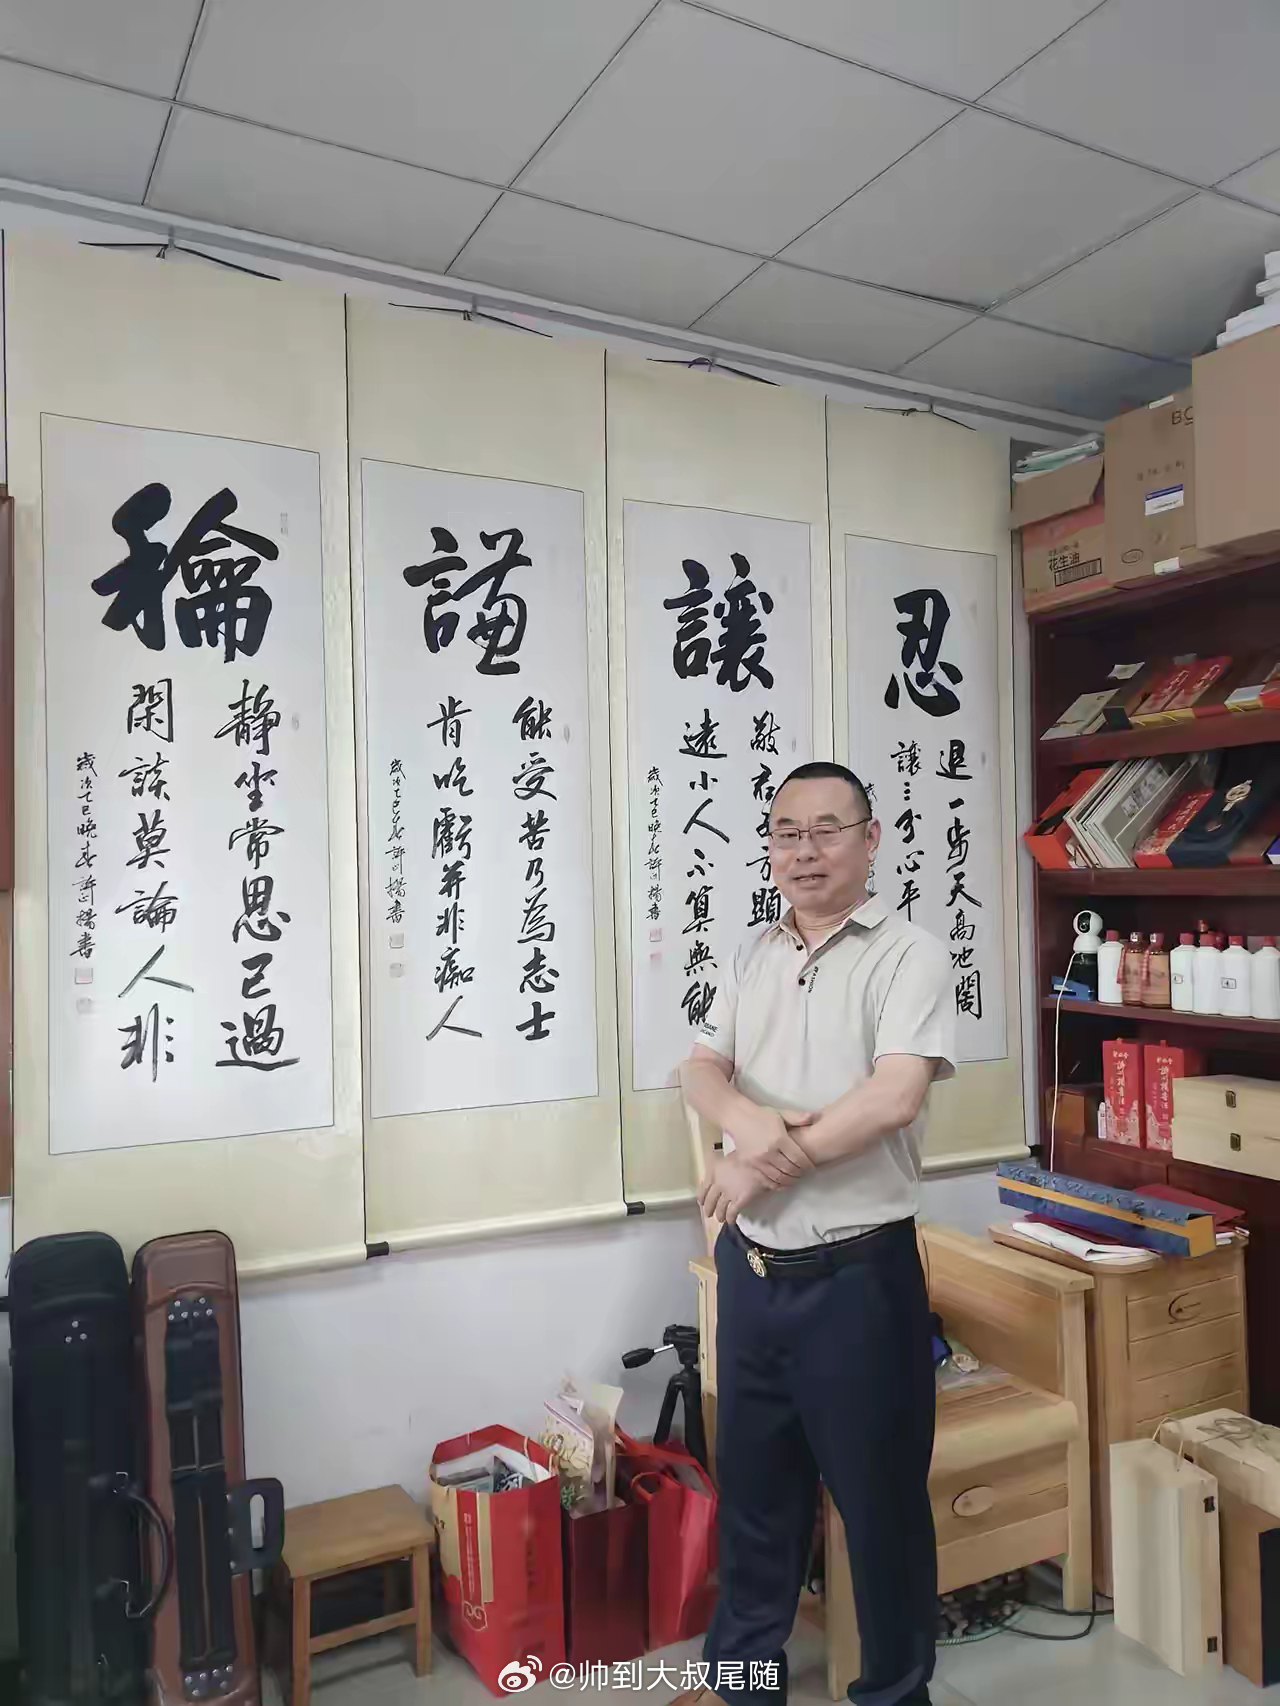 忍
退一步天高地闊
讓三分心平
讓
敬君子方顯
遠小人不算無能
歲次乙巳晚春許川揚書
謙
能受苦乃為志士
肯吃虧并非痴人
歲次乙巳春許川揚書
龢
靜坐常思己過
閑談莫論人非
歲次乙巳晚春許川揚書
花生油
@帅到大叔尾随